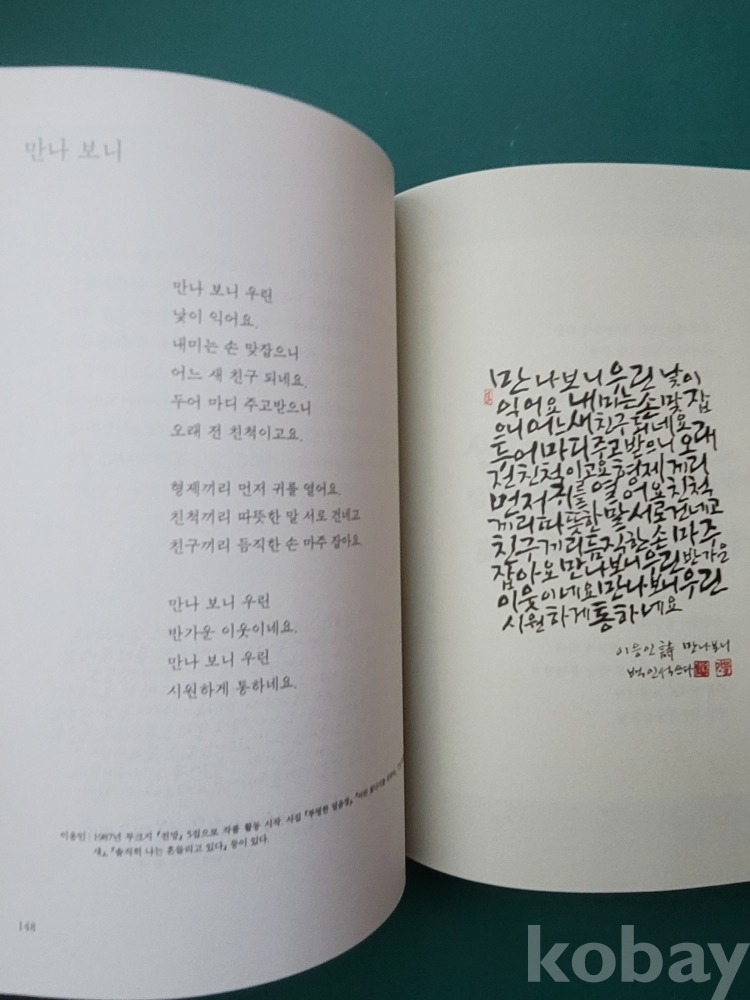 만나 보니
만나 보니 우린
낯이 익어요.
내미는 손 맞잡으니
어느 새 친구 되네요.
두어 마디 주고받으니
오래 전 친척이고요.
형제끼리 먼저 귀를 열어요.
친척끼리 따뜻한 말 서로 건네고
친구끼리 듬직한 손 마주 잡아요.
만나 보니 우린
반가운 이웃이네요.
만나 보니 우린
시원하게 통하네요.
이응인 : 1987년 무크지 『전망』 5집으로 작품 활동 시작. 시집 『투명한
새』, 『솔직히 나는 흔들리고 있다』 등이 있다.
148
만나보니우린낯이
익어요내미는손맞잡
으니어느새친구되네요
두어마디주고받으니오래
전친척이고요형제끼리
먼저귀를열어요친척
끼리따뜻한말서로건네고
친구끼리듬직한손마주
잡아요만나보니우린반가운
이웃이네요만나보니우린
시원하게통하네요
이응인 詩 만나보니
백인석쓰다
kobay